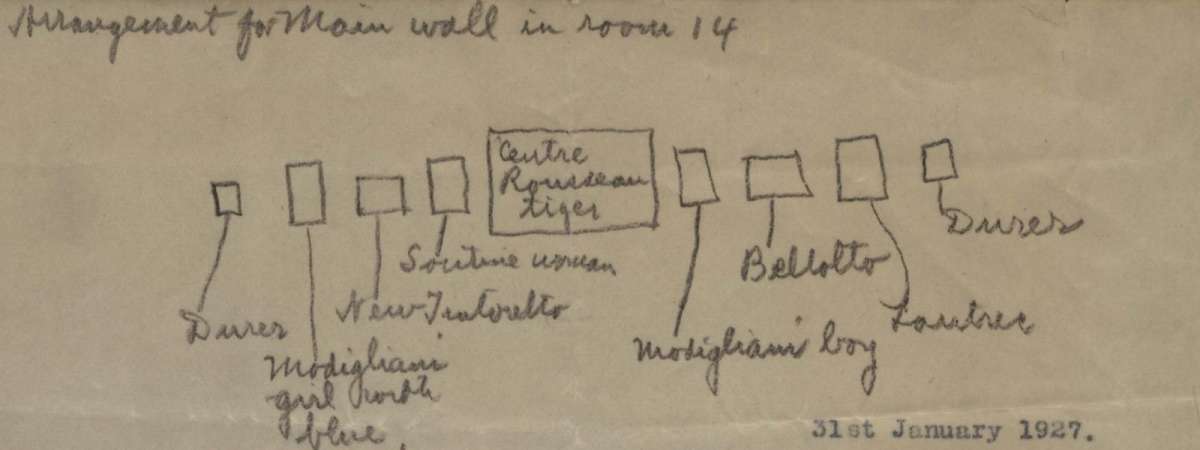 Arrangement for Main wall in room 14
Centre
Rousseau
tiger
Durer
Soutine woman
Bellotto
New Tintoretto
Durer
Lautrec
Modigliani boy
Modigliani
girl with
blue.
31st January 1927.